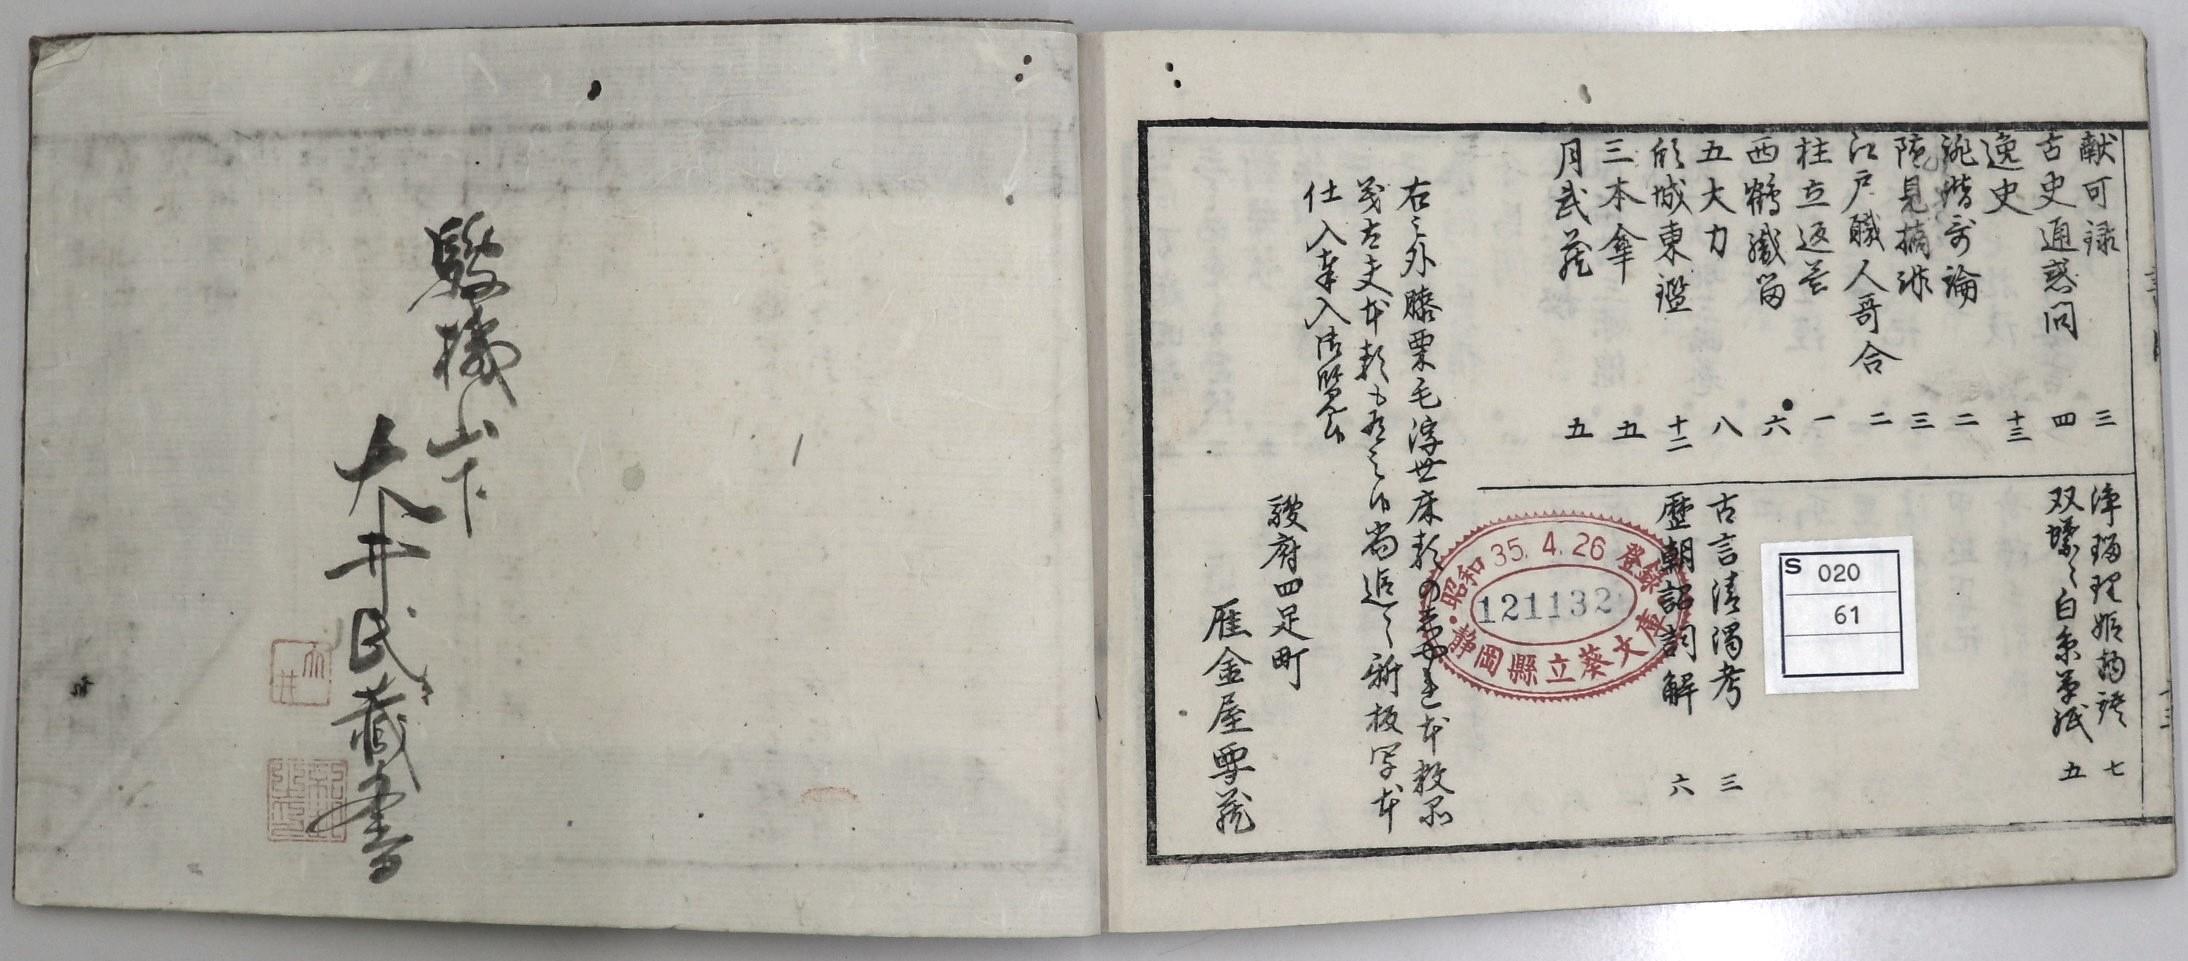 献可録 三
古史通惑問 四
逸史 十三
誹諧哥論 二
随見摘説 三
江戸職人哥合 二
柱立返答 一
西鶴織留 六
五大力 八
傾城東鑑 十二
三本傘 五
月武蔵 五
浄瑠理姫物語 七
双蝶々白糸草紙 五
古言清濁考 三
歴朝詔詞解 六
右之外膝栗毛浮世床類の
本数品
義太夫本類も有之候尚追々新板写本
仕入奉入御覧候
駿府四足町
雁金屋要蔵
昭和 35.4.26 登録
121132
静岡縣立葵文庫
S 020
61
駿機山下
大井氏蔵書
大井